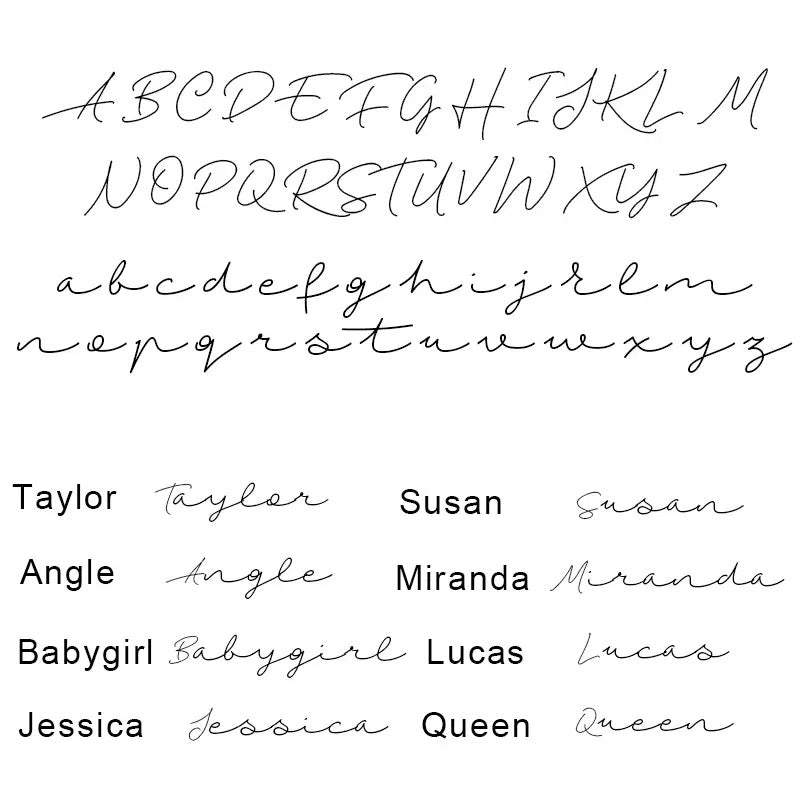 A B C D E F G H I J K L M
N O P Q R S T U V W X Y Z
a b c d e f g h i j k l m
n o p q r s t u v w x y z
Taylor Taylor Susan Susan
Angle Angle Miranda Miranda
Babygirl Babygirl Lucas Lucas
Jessica Jessica Queen Queen